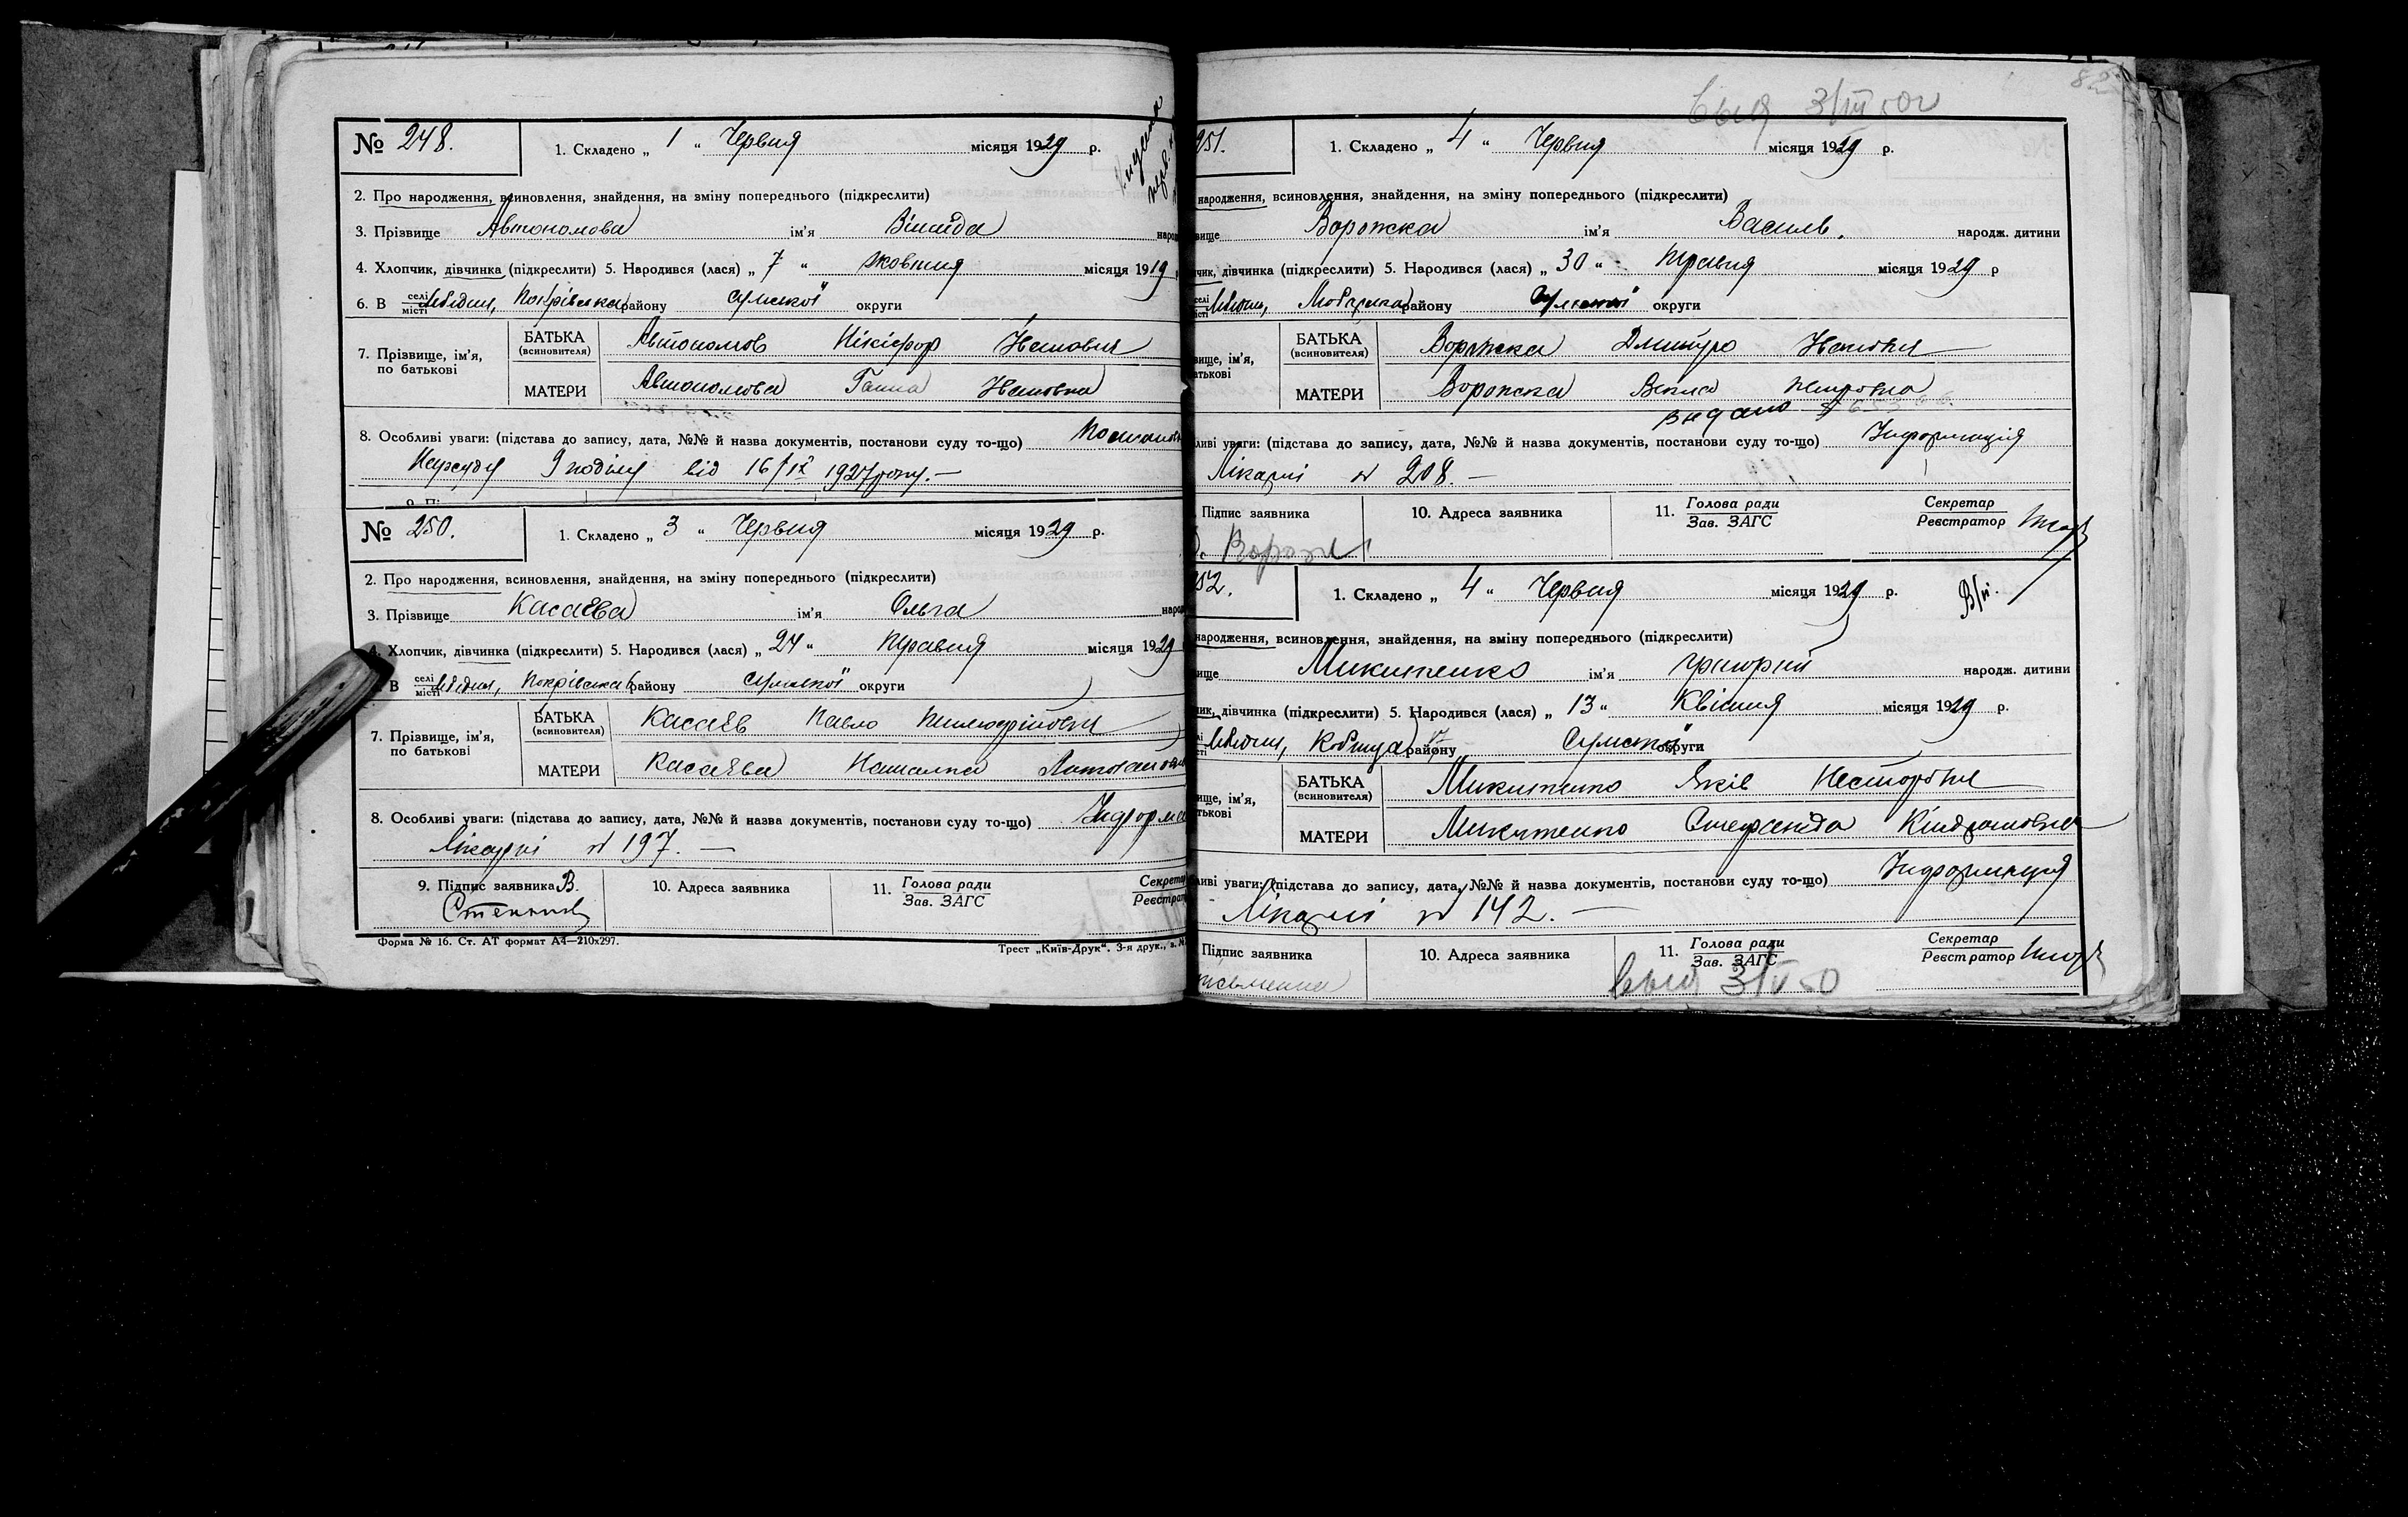 № 248.
1. Складено „ 1 “ Червня місяця 1929 р.
2. Про народження, всиновлення, знайдення, на зміну попереднього (підкреслити)
3. Прізвище Автономова ім'я Зінаїда
4. Хлопчик, дівчинка (підкреслити) 5. Народився (лася) „ 7 “ жовтня місяця 1919
6. В селі місті Лебедин, району Сумської округи
7. Прізвище, ім'я, по батькові
БАТЬКА (всиновителя) Автономов Нікіфор Іванович
МАТЕРИ Автономова Ганна Івановна
8. Особливі уваги: (підстава до запису, дата, №№ й назва документів, постанови суду то-що)
Нарсуду 9 від 16/IX 1927 року. —
№ 250.
1. Складено „ 3 “ Червня місяця 1929 р.
2. Про народження, всиновлення, знайдення, на зміну попереднього (підкреслити)
3. Прізвище Касаєва ім'я Ольга
4. Хлопчик, дівчинка (підкреслити) 5. Народився (лася) „ 24 “ травня місяця 1929
В селі місті Лебедин, району Сумської округи
7. Прізвище, ім'я, по батькові
БАТЬКА (всиновителя) Касаєв Павло
МАТЕРИ Касаєва Наталка
8. Особливі уваги: (підстава до запису, дата, №№ й назва документів, постанови суду то-що) Інформа
Лікарні № 197. —
9. Підпис заявника 10. Адреса заявника 11. Голова ради Зав. ЗАГС
Форма № 16. Ст. АТ формат А4—210х297.
Трест „Київ-Друк“. 3-я друк.,
951.
1. Складено „ 4 “ Червня місяця 1929 р.
народження, всиновлення, знайдення, на зміну попереднього (підкреслити)
вище Ворожка ім'я Василь. народж. дитини
чик, дівчинка (підкреслити) 5. Народився (лася) „ 30 “ травня місяця 1929 р
Лебедин, району Сумської округи
вище, ім'я, атькові
БАТЬКА (всиновителя) Ворожка Дмитро Іванович
МАТЕРИ Ворожка Векла Петровна
видано
ливі уваги: (підстава до запису, дата, №№ й назва документів, постанови суду то-що) Інформація
Лікарні № 208. —
Підпис заявника 10. Адреса заявника 11. Голова ради Зав. ЗАГС Секретар Реєстратор
52.
1. Складено „ 4 “ Червня місяця 1929 р.
народження, всиновлення, знайдення, на зміну попереднього (підкреслити)
ище Микитенко ім'я Григорій народж. дитини
чик, дівчинка (підкреслити) 5. Народився (лася) „ 13 “ Квітня місяця 1929 р.
Лебедин, району Сумської округи
ище, ім'я, тькові
БАТЬКА (всиновителя) Микитенко Яків Несторович
МАТЕРИ Микитенко Степанида Кіндратовна
ливі уваги: (підстава до запису, дата, №№ й назва документів, постанови суду то-що) Інформація
Лікарні № 142. —
Підпис заявника 10. Адреса заявника 11. Голова ради Зав. ЗАГС Секретар Реєстратор